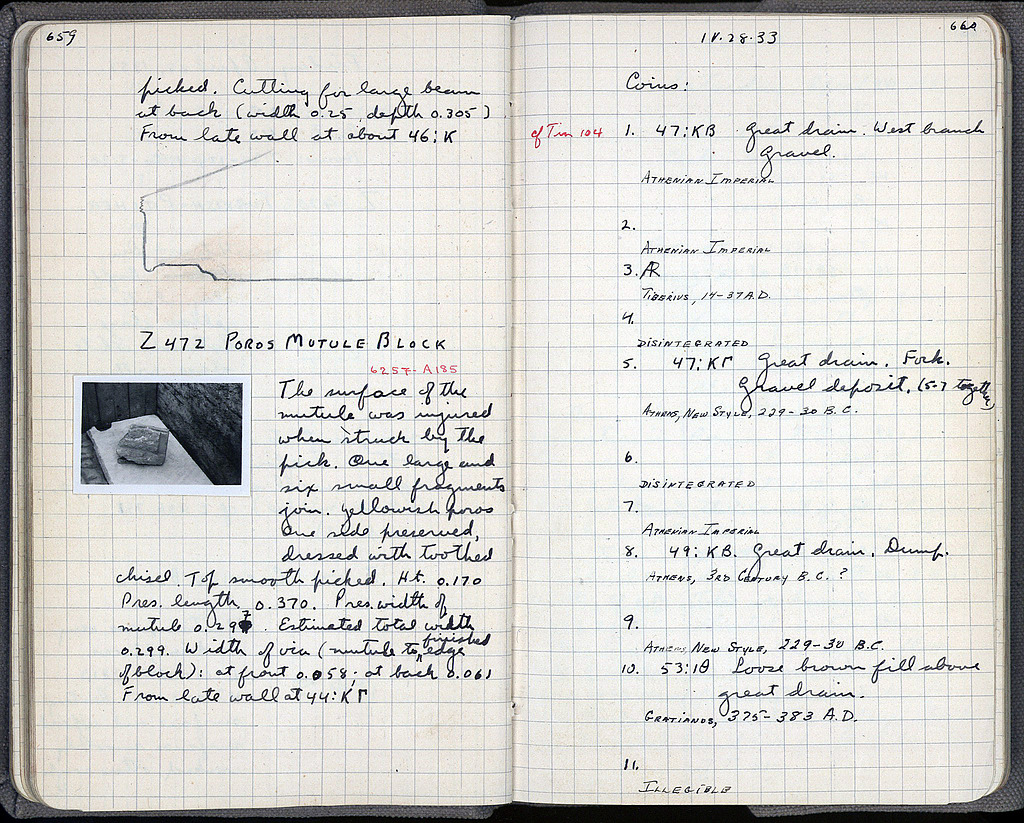 659
picked. Cutting for large beam
at back (width 0.25, depth 0.305)
From late wall at about 46:K
Z 472 POROS MUTULE BLOCK
6257- A185
The surface of the
mutule was injured
when struck by the
pick. One large and
six small fragments
join. Yellowish poros
One side preserved,
dressed with toothed
chisel. Top smooth picked. Ht. 0.170
Pres. length, 0.370. Pres. width of
mutule 0.297. Estimated total width
0.299. Width of via (mutule to finished edge
of block): at front 0.058; at back 0.061
From late wall at 44:ΚΓ
660
IV.28.33
Coins:
1. 47:KB Great drain. West branch
Gravel.
ATHENIAN IMPERIAL
2.
ATHENIAN IMPERIAL
3. AR
TIBERIUS, 14-37 A.D.
4.
DISINTEGRATED
5. 47:ΚΓ Great drain. Fork.
Gravel deposit. (5-7 together)
ATHENS, NEW STYLE, 229-30 B.C.
6.
DISINTEGRATED
7.
ATHENIAN IMPERIAL
8. 49:KB. Great drain. Dump.
ATHENS, 3RD CENTURY B.C. ?
9.
ATHENS, NEW STYLE, 229-30 B.C.
10. 53:ΙΘ Loose brown fill above
great drain.
GRATIANUS, 375-383 A.D.
11.
ILLEGIBLE